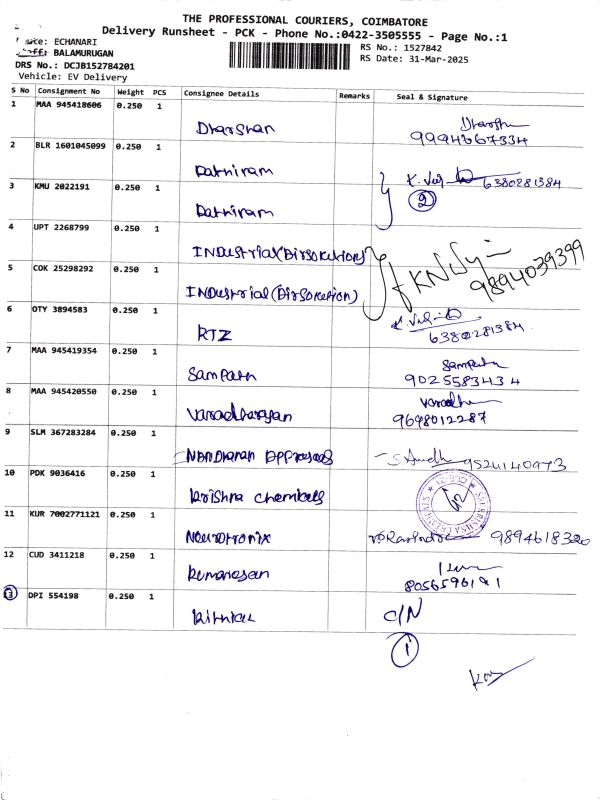 THE PROFESSIONAL COURIERS, COIMBATORE
Delivery Runsheet - PCK - Phone No.:0422-3505555 - Page No.:1
ECHANARI
RS No.: 1527842
BALAMURUGAN
RS Date: 31-Mar-2025
DRS No.: DCJB152784201
Vehicle: EV Delivery
S No Consignment No Weight PCS Consignee Details Remarks Seal & Signature
1 MAA 945418606 0.250 1
Dharshan 9994667334
2 BLR 1601045099 0.250 1
Pathiram 6380281384
3 KMU 2022191 0.250 1 2
Pathiram
4 UPT 2268799 0.250 1
Industrial 9894039399
5 COK 25298292 0.250 1
Industrial
6 OTY 3894583 0.250 1
RTZ 6380281384
7 MAA 945419354 0.250 1 Sampath
Sampath 9025583434
8 MAA 945420550 0.250 1
Varadharajan 9698012287
9 SLM 367283284 0.250 1
9524140973
10 PDK 9036416 0.250 1
Krishna Chemicals SRI KRISHNA CHEMICALS
11 KUR 7002771121 0.250 1
9894618320
12 CUD 3411218 0.250 1
Kumaresan 8056596191
13 DPI 554198 0.250 1
C/N
1